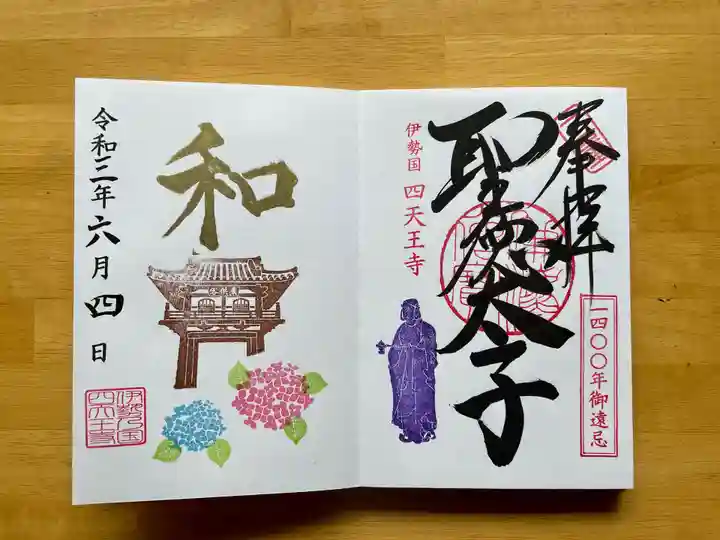 奉拝
聖徳太子
一四〇〇年御遠忌
伊勢国 四天王寺
和
令和三年六月四日
伊勢乃国
四天王寺